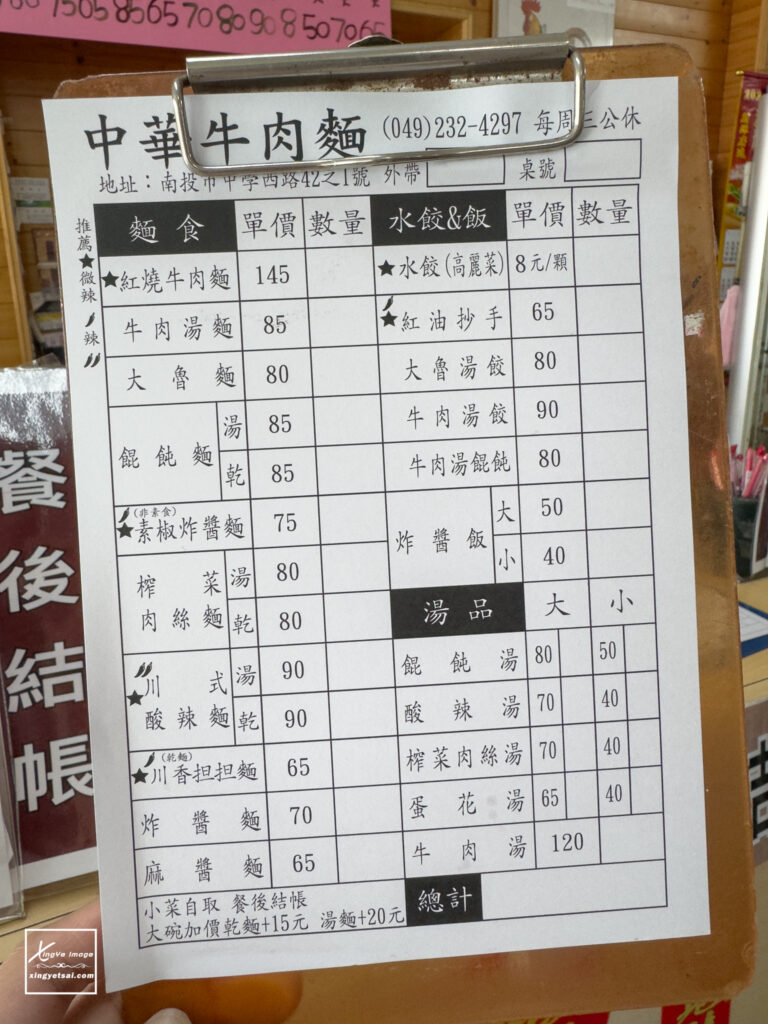 75 05 85 65 70 80 90 8 50 70 65
中華牛肉麵 (049)232-4297 每周三公休
地址：南投市中學西路42之1號 外帶 桌號
推薦★ 微辣 辣
麵食 單價 數量
★紅燒牛肉麵 145
牛肉湯麵 85
大魯麵 80
餛飩麵 湯 85
乾 85
(非素食)
★素椒炸醬麵 75
榨菜肉絲麵 湯 80
乾 80
★川式酸辣麵 湯 90
乾 90
(乾麵)
★川香担担麵 65
炸醬麵 70
麻醬麵 65
小菜自取 餐後結帳
大碗加價乾麵+15元 湯麵+20元
水餃&飯 單價 數量
★水餃(高麗菜) 8元/顆
★紅油抄手 65
大魯湯餃 80
牛肉湯餃 90
牛肉湯餛飩 80
炸醬飯 大 50
小 40
湯品 大 小
餛飩湯 80 50
酸辣湯 70 40
榨菜肉絲湯 70 40
蛋花湯 65 40
牛肉湯 120
總計
餐後結帳
XingYe Image
xingyetsai.com